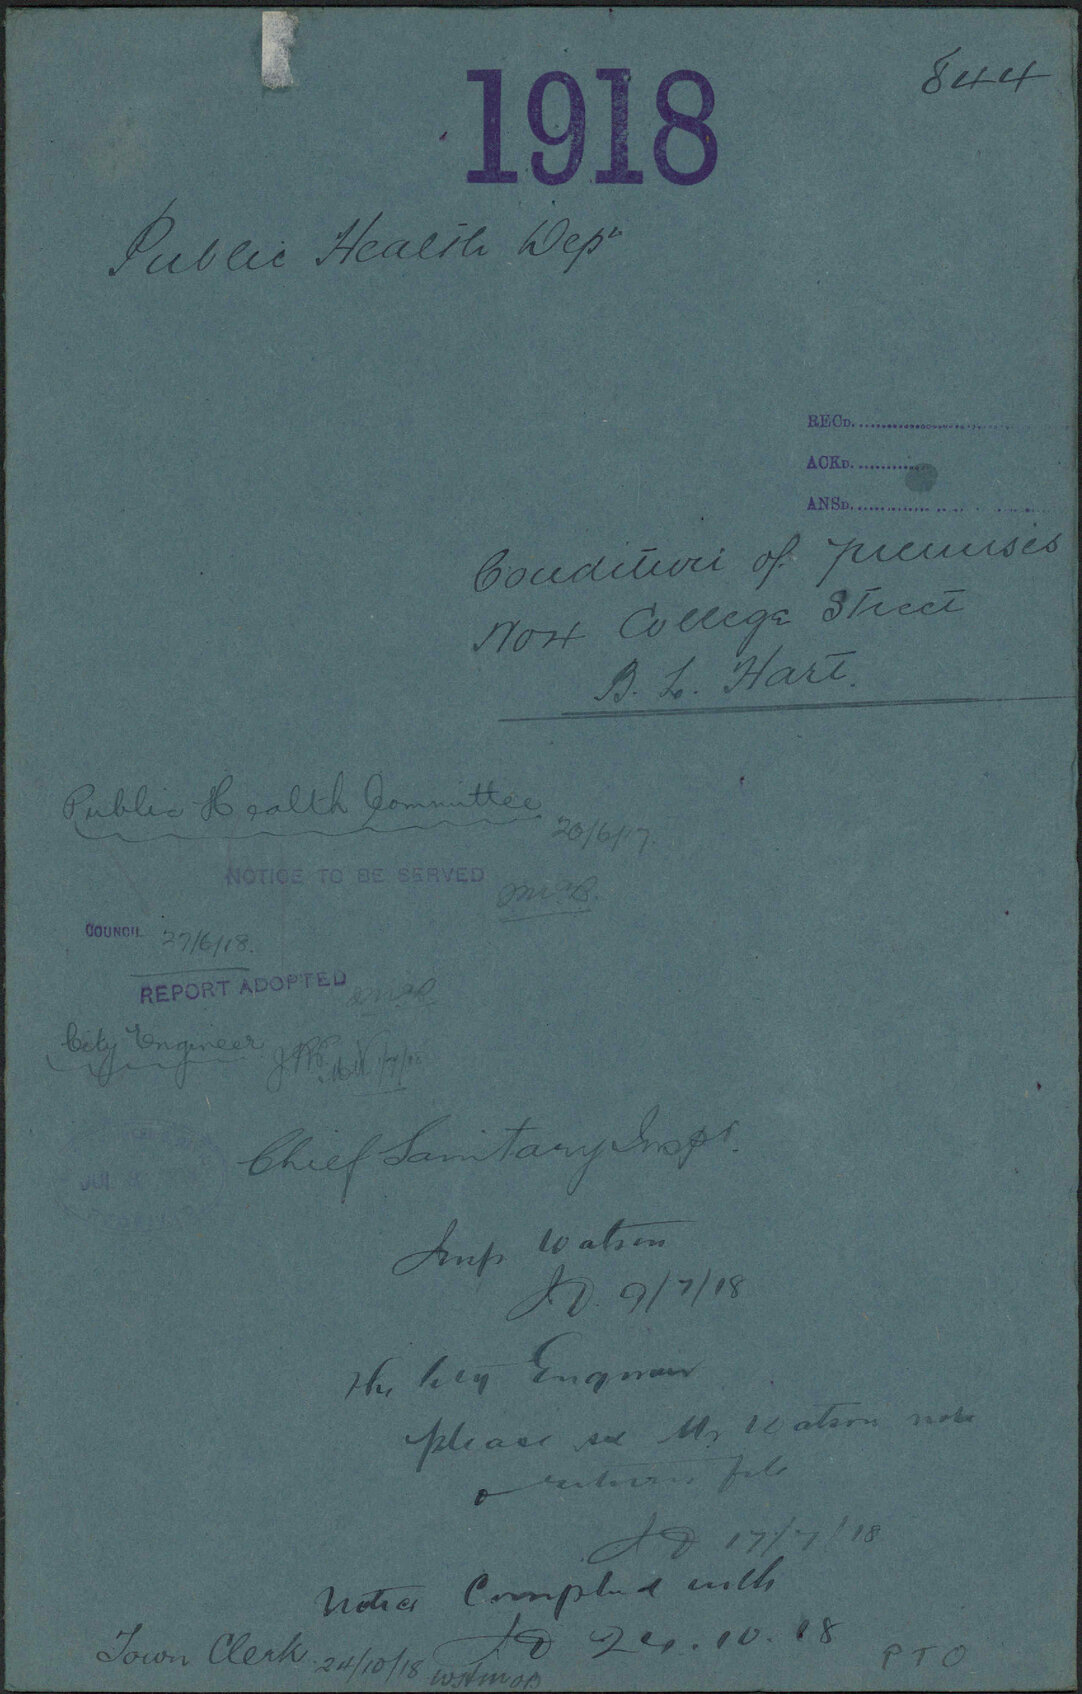 844
1918
Public Health Dept
RECD.
ACKD.
ANSD.
Condition of premises
Nox College Street
B. L. Hart.
Public Health Committee
20/6/17.
NOTICE TO BE SERVED
COUNCIL 27/6/18.
REPORT ADOPTED
City Engineer
Chief Sanitary Inspr.
JUL
Insp Watson
JD. 9/7/18
The City Engineer
please see Mr Watson note
return file
JD 17/7/18
Notice Complied with
JD 24.10.18
Town Clerk 24/10/18
PTO